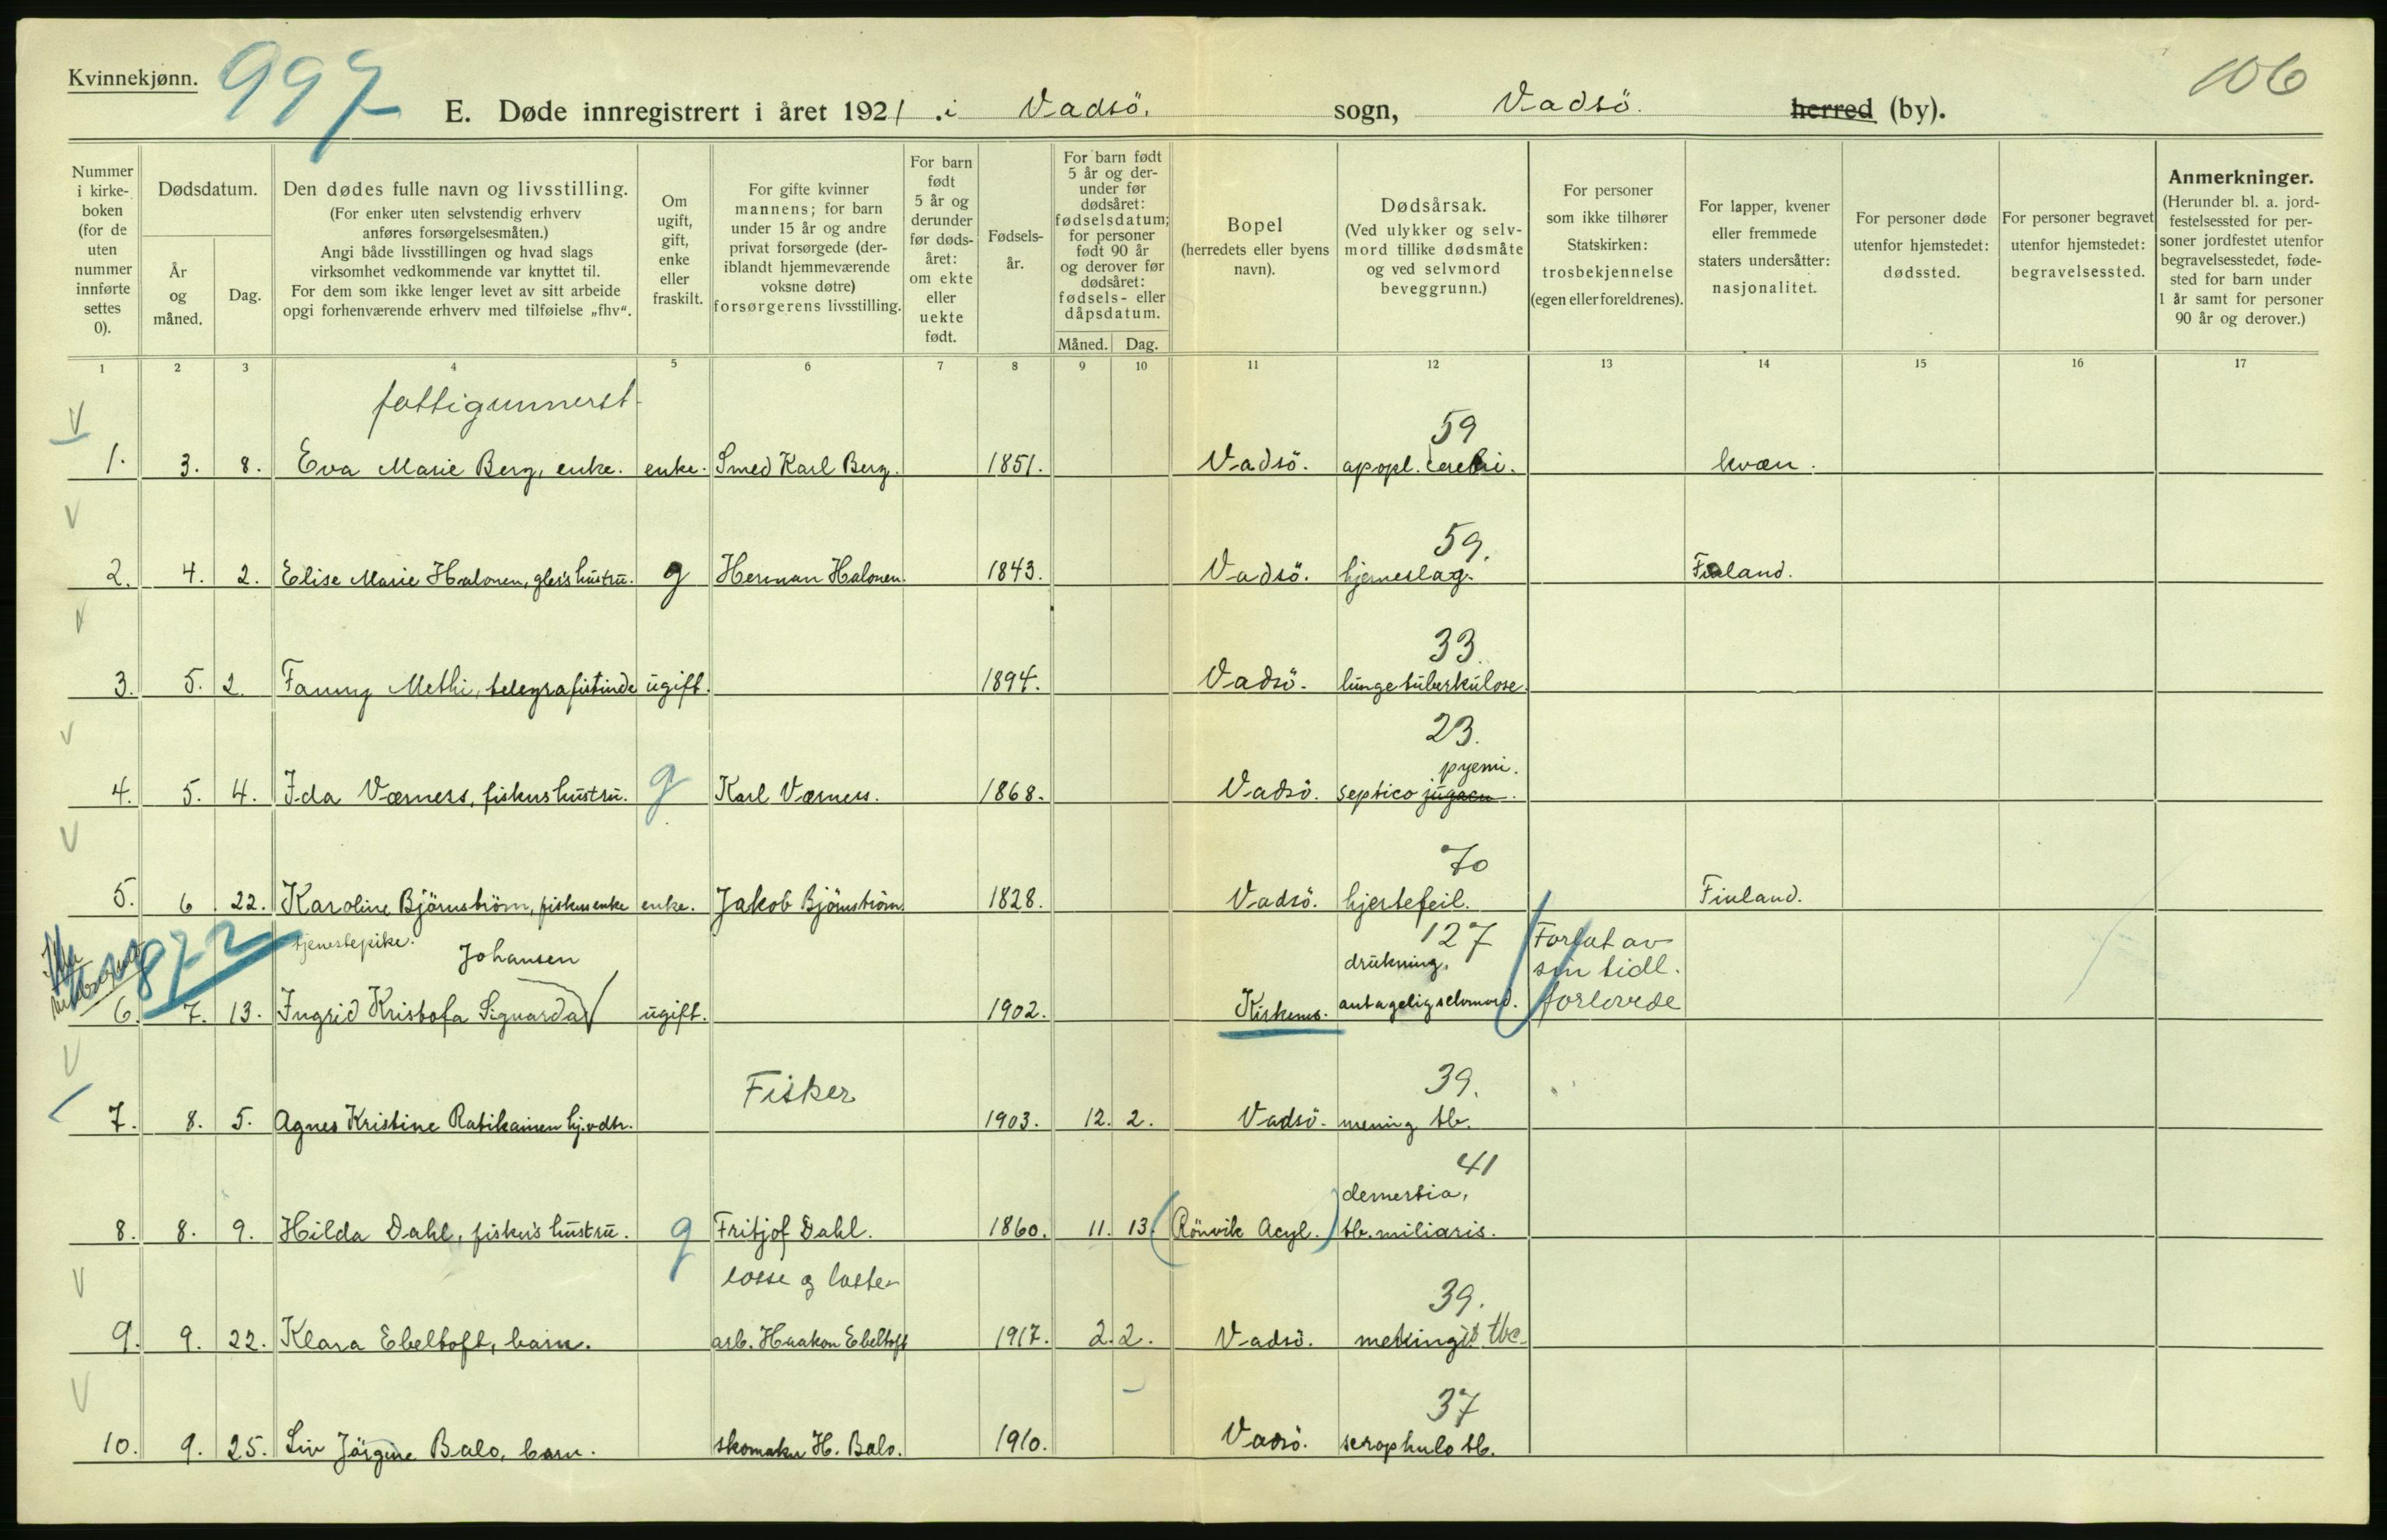 Kvinnekjønn.
997
106
E. Døde innregistrert i året 1921 . i Vadsö. sogn, Vadsö. herred (by).
Nummer i kirke-boken (for de uten nummer innførte settes 0).
Dødsdatum.
År og måned.
Dag.
Den dødes fulle navn og livsstilling.
(For enker uten selvstendig erhverv anføres forsørgelsesmåten.)
Angi både livsstillingen og hvad slags virksomhet vedkommende var knyttet til.
For dem som ikke lenger levet av sitt arbeide opgi forhenværende erhverv med tilføielse „fhv“.
Om ugift, gift, enke eller fraskilt.
For gifte kvinner mannens; for barn under 15 år og andre privat forsørgede (deriblandt hjemmeværende voksne døtre) forsørgerens livsstilling.
For barn født 5 år og derunder før dødsåret: om ekte eller uekte født.
Fødselsår.
For barn født 5 år og derunder før dødsåret: fødselsdatum; for personer født 90 år og derover før dødsåret: fødsels- eller dåpsdatum.
Måned.
Dag.
Bopel (herredets eller byens navn).
Dødsårsak. (Ved ulykker og selvmord tillike dødsmåte og ved selvmord beveggrunn.)
For personer som ikke tilhører Statskirken: trosbekjennelse (egen eller foreldrenes).
For lapper, kvener eller fremmede staters undersåtter: nasjonalitet.
For personer døde utenfor hjemstedet: dødssted.
For personer begravet utenfor hjemstedet: begravelsessted.
Anmerkninger. (Herunder bl. a. jordfestelsessted for personer jordfestet utenfor begravelsesstedet, fødested for barn under 1 år samt for personer 90 år og derover.)
1 2 3 4 5 6 7 8 9 10 11 12 13 14 15 16 17
fattigunnerst. 59
1. 3. 8. Eva Marie Berg, enke. enke. Smed Karl Berg. 1851. Vadsö. apopl. cerebri. kvæn.
59.
2. 4. 2. Elise Marie Halonen, gler's hustru. g Herman Halonen. 1843. Vadsö. hjerneslag. Finland.
33
3. 5. 2. Fanny Methi, telegrafistinde ugift. 1894. Vadsö. lungetuberkulose.
23.
pyemi.
4. 5. 4. Ida Værness, fiskers hustru. g Karl Værness. 1868. Vadsö. septico
70
5. 6 22. Karoline Björnström, fiskers enke enke. Jakob Björnström. 1828. Vadsö. hjertefeil. Finland.
872 tjenestepike. Johansen 127 drukning, Forlat av sin tidl. forlovede
6. 7. 13. Ingrid Kristofa Sigvarda ugift. 1902. Kirkenes. antagelig selvmord.
Fisker 39.
7. 8. 5. Agnes Kristine Ratikainen hj.v.dtr. 1903. 12. 2. Vadsö. mening tb.
41
dementia,
8. 8. 9. Hilda Dahl, fisker's hustru. g Fritjof Dahl. 1860. 11. 13. (Rönvik Acyl.) tb. miliaris.
losse og laste- 39.
9. 9. 22. Klara Ebeltoft, barn. arb. Haakon Ebeltoft 1917. 2. 2. Vadsö. meningit tbc.
37
10. 9. 25. Liv Jörgine Balo, barn. skomaker H. Balo. 1910. Vadsö. scrophulo tb.